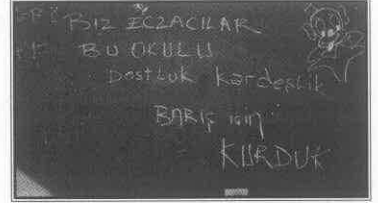 BİZ ECZACILAR
BU OKULU
Dostluk kardeşlik
BARIŞ için
KURDUK